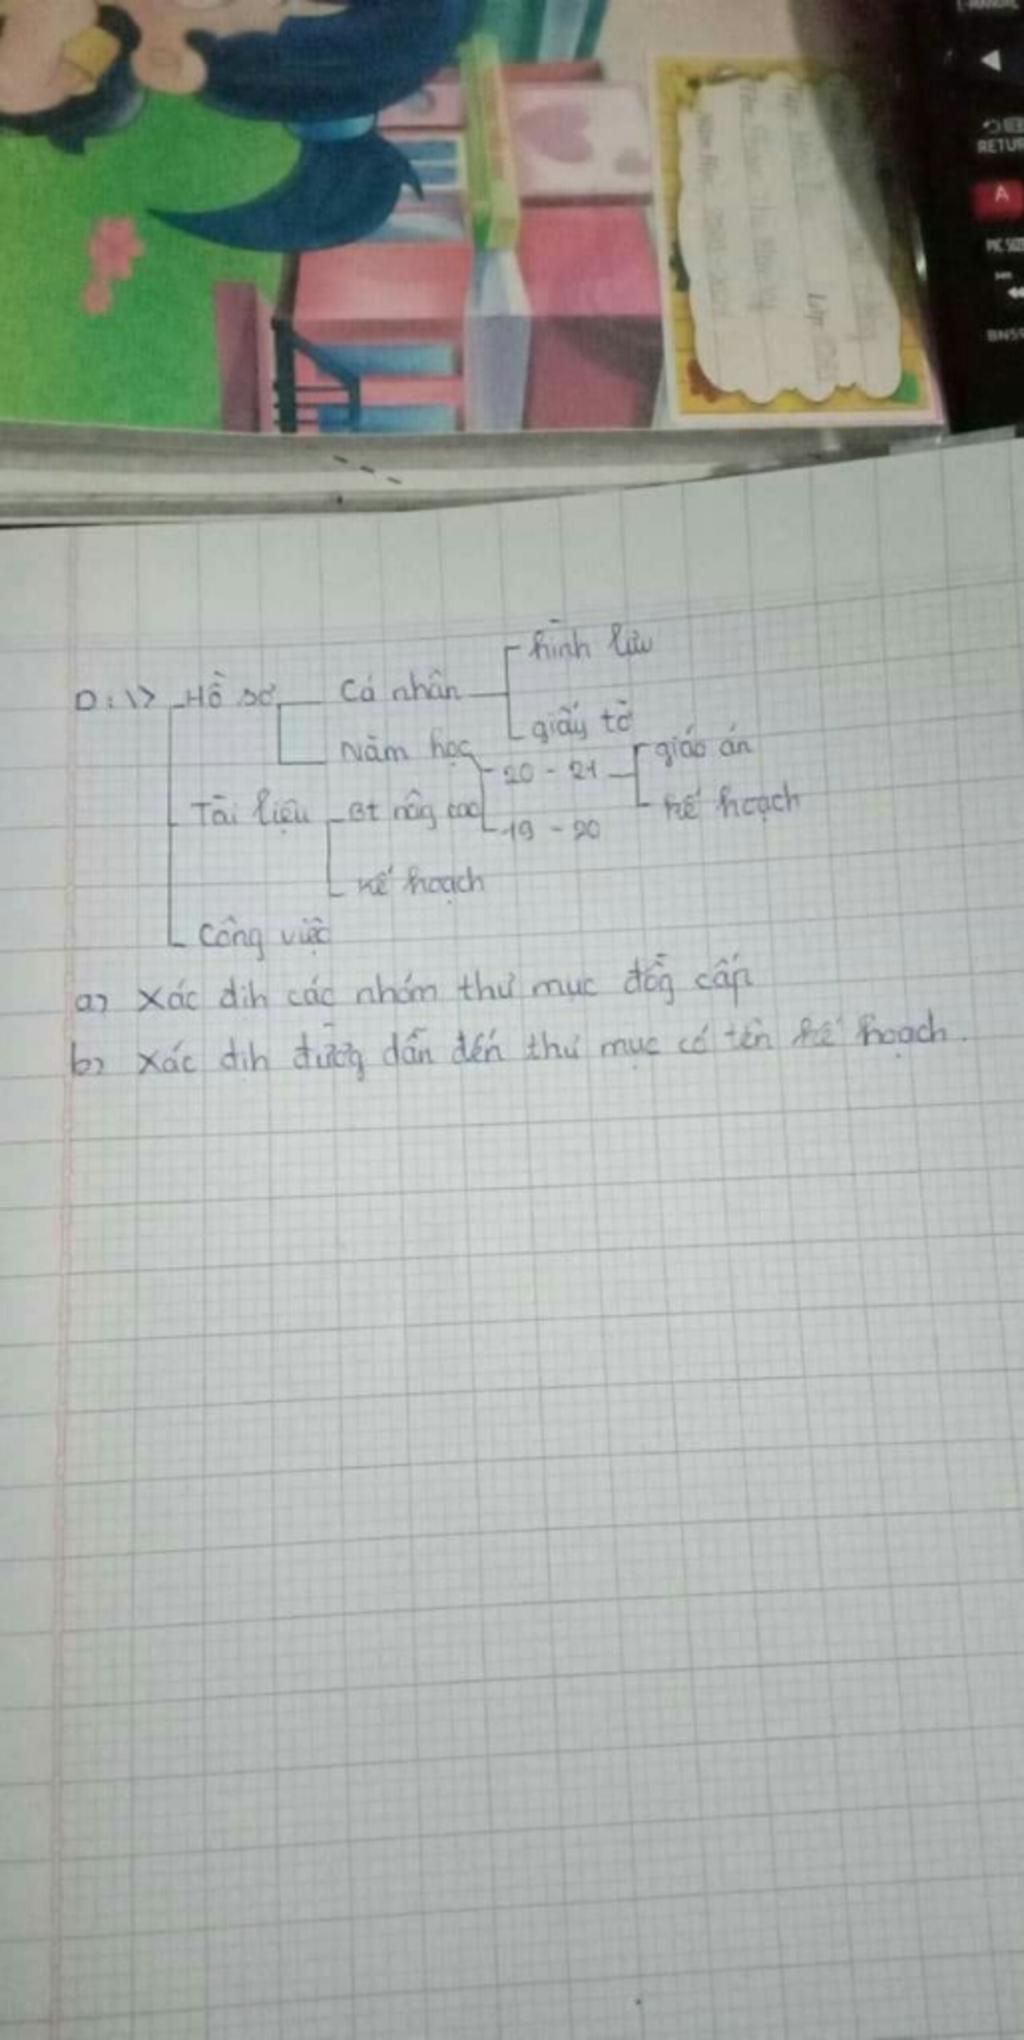 RETUR
A
PIC SIZE
Lớp
D:\> Hồ sơ Cá nhân hình lưu
giấy tờ
Năm học 20 - 21 giáo án
kế hoạch
19 - 20
Tài liệu BT nâng cao
kế hoạch
Công việc
a) Xác địh các nhóm thư mục đồg cấp
b) Xác địh đườg dẫn đến thư mục có tên kế hoạch.